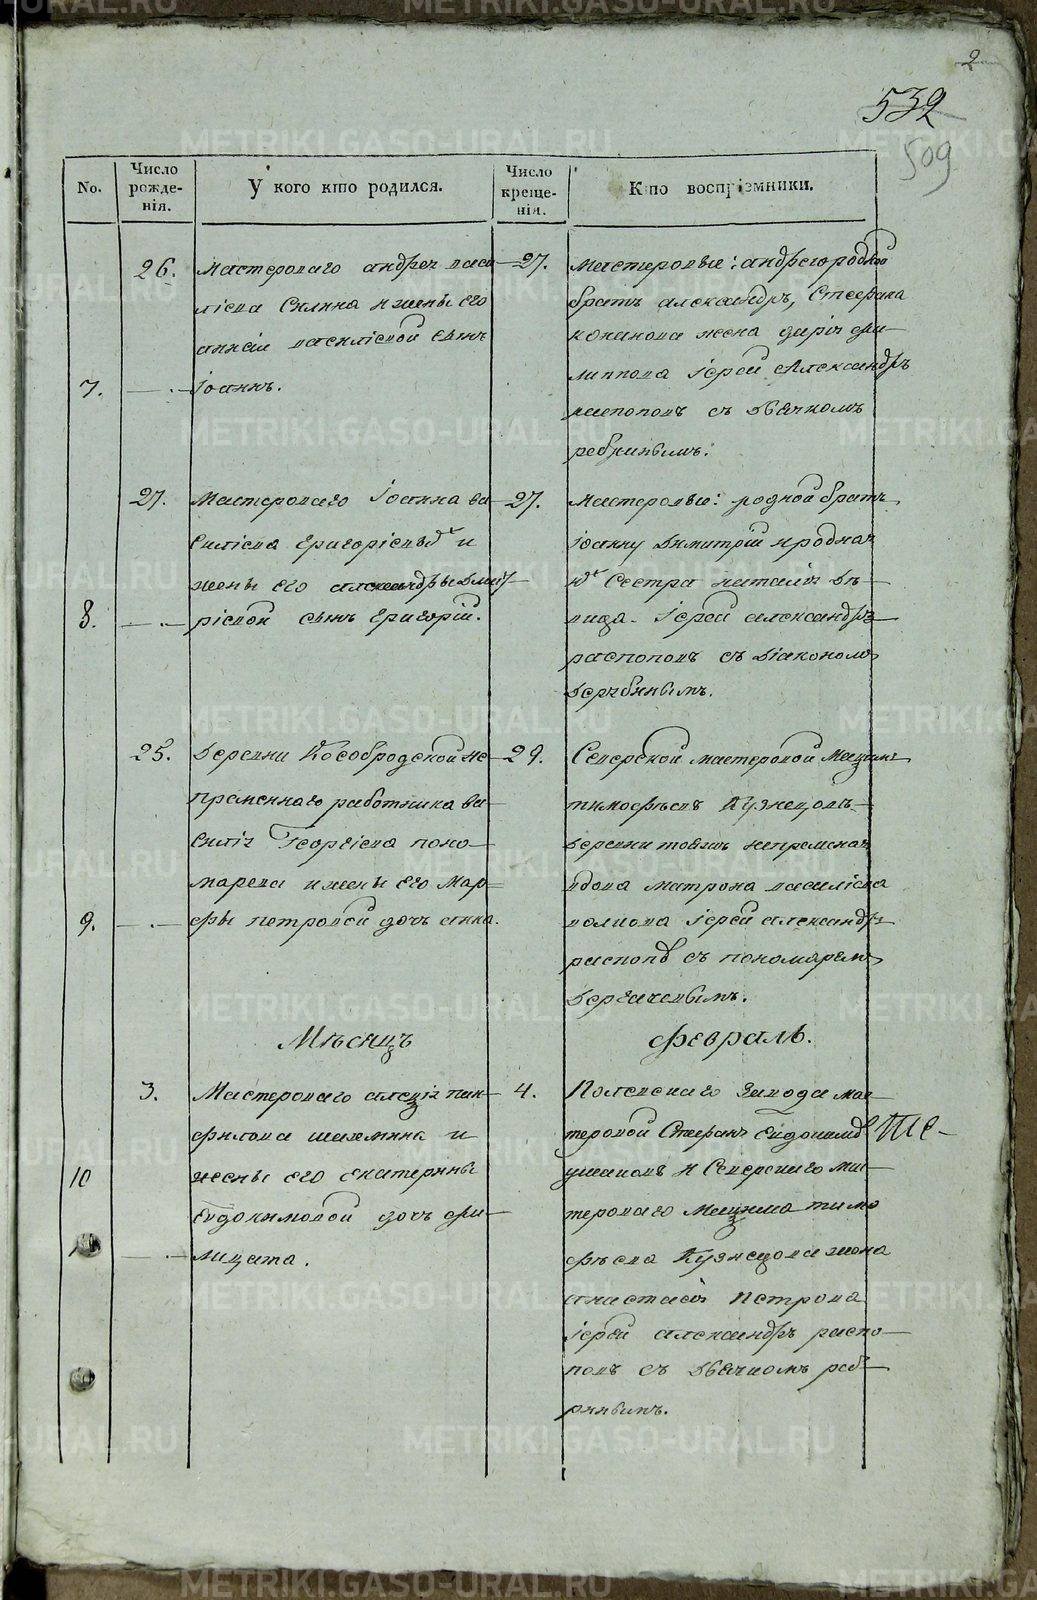 2
532
509
No.
Число рожденія.
У кого кто родился.
Число крещенія.
Кто воспріемники.
26.
Мастероваго андреа васи
ліева Силина и жены его
василіевой сынъ
7.
Іоаннъ.
27.
Мастеровые: андрею родной
братъ александръ, Стефана
кононова жена дарія фи
липпова Іерей Александръ
распоповъ съ дьячкомъ
27.
Мастероваго Іоанна ва
силіева Григоріевыхъ и
жены его александры дмит
8.
ріевой сынъ Григорій.
27.
мастеровые: родной братъ
іоанну димитрій и родная
ихъ Сестра наталія дѣ
вица. Іерей александръ
распоповъ съ діакономъ
25.
деревни Кособродской не
премѣннаго работника ва
силія Георгіева поно
марева и жены его Мар
9.
фы петровой дочь анна.
29.
Северской мастеровой
тимофѣевъ Кузнецовъ
деревни тоажъ непремѣная
вдова матрона василіева
іерей александръ
распоповъ съ пономаремъ
Мѣсяцъ
февраль.
3.
Мастероваго алексія пан
филова шелемина и
10
жены его екатерины
Евдокимовой дочь фи
лицата.
4.
Полевскаго завода мас
теровой Стефанъ Евдокимовъ
ушаковъ и Северскаго мас
тероваго тимо
фѣева Кузнецова жена
анастасія петрова
іерей александръ распо
повъ съ дьячкомъ реб
METRIKI.GASO-URAL.RU